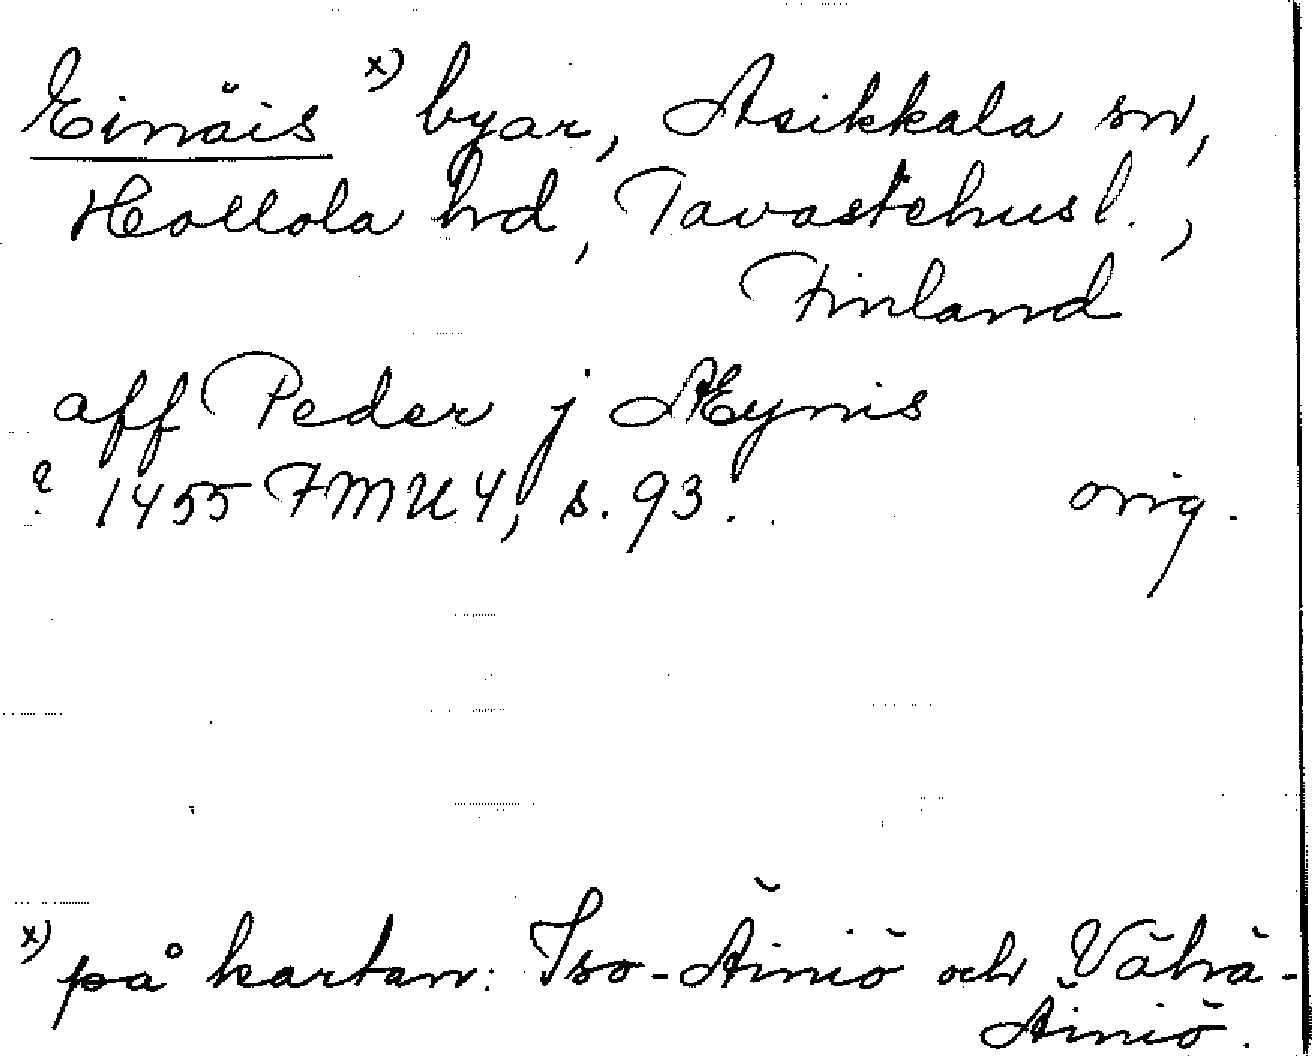 Einäis x) byar, Asikkala sn,
Hollola hd, Tavastehus l.,
Finland
aff Peder j Æynis
? 1455 FMU 4, s. 93. orig.
x) på kartan: Iso-Äiniö och Vähä-
Äiniö.